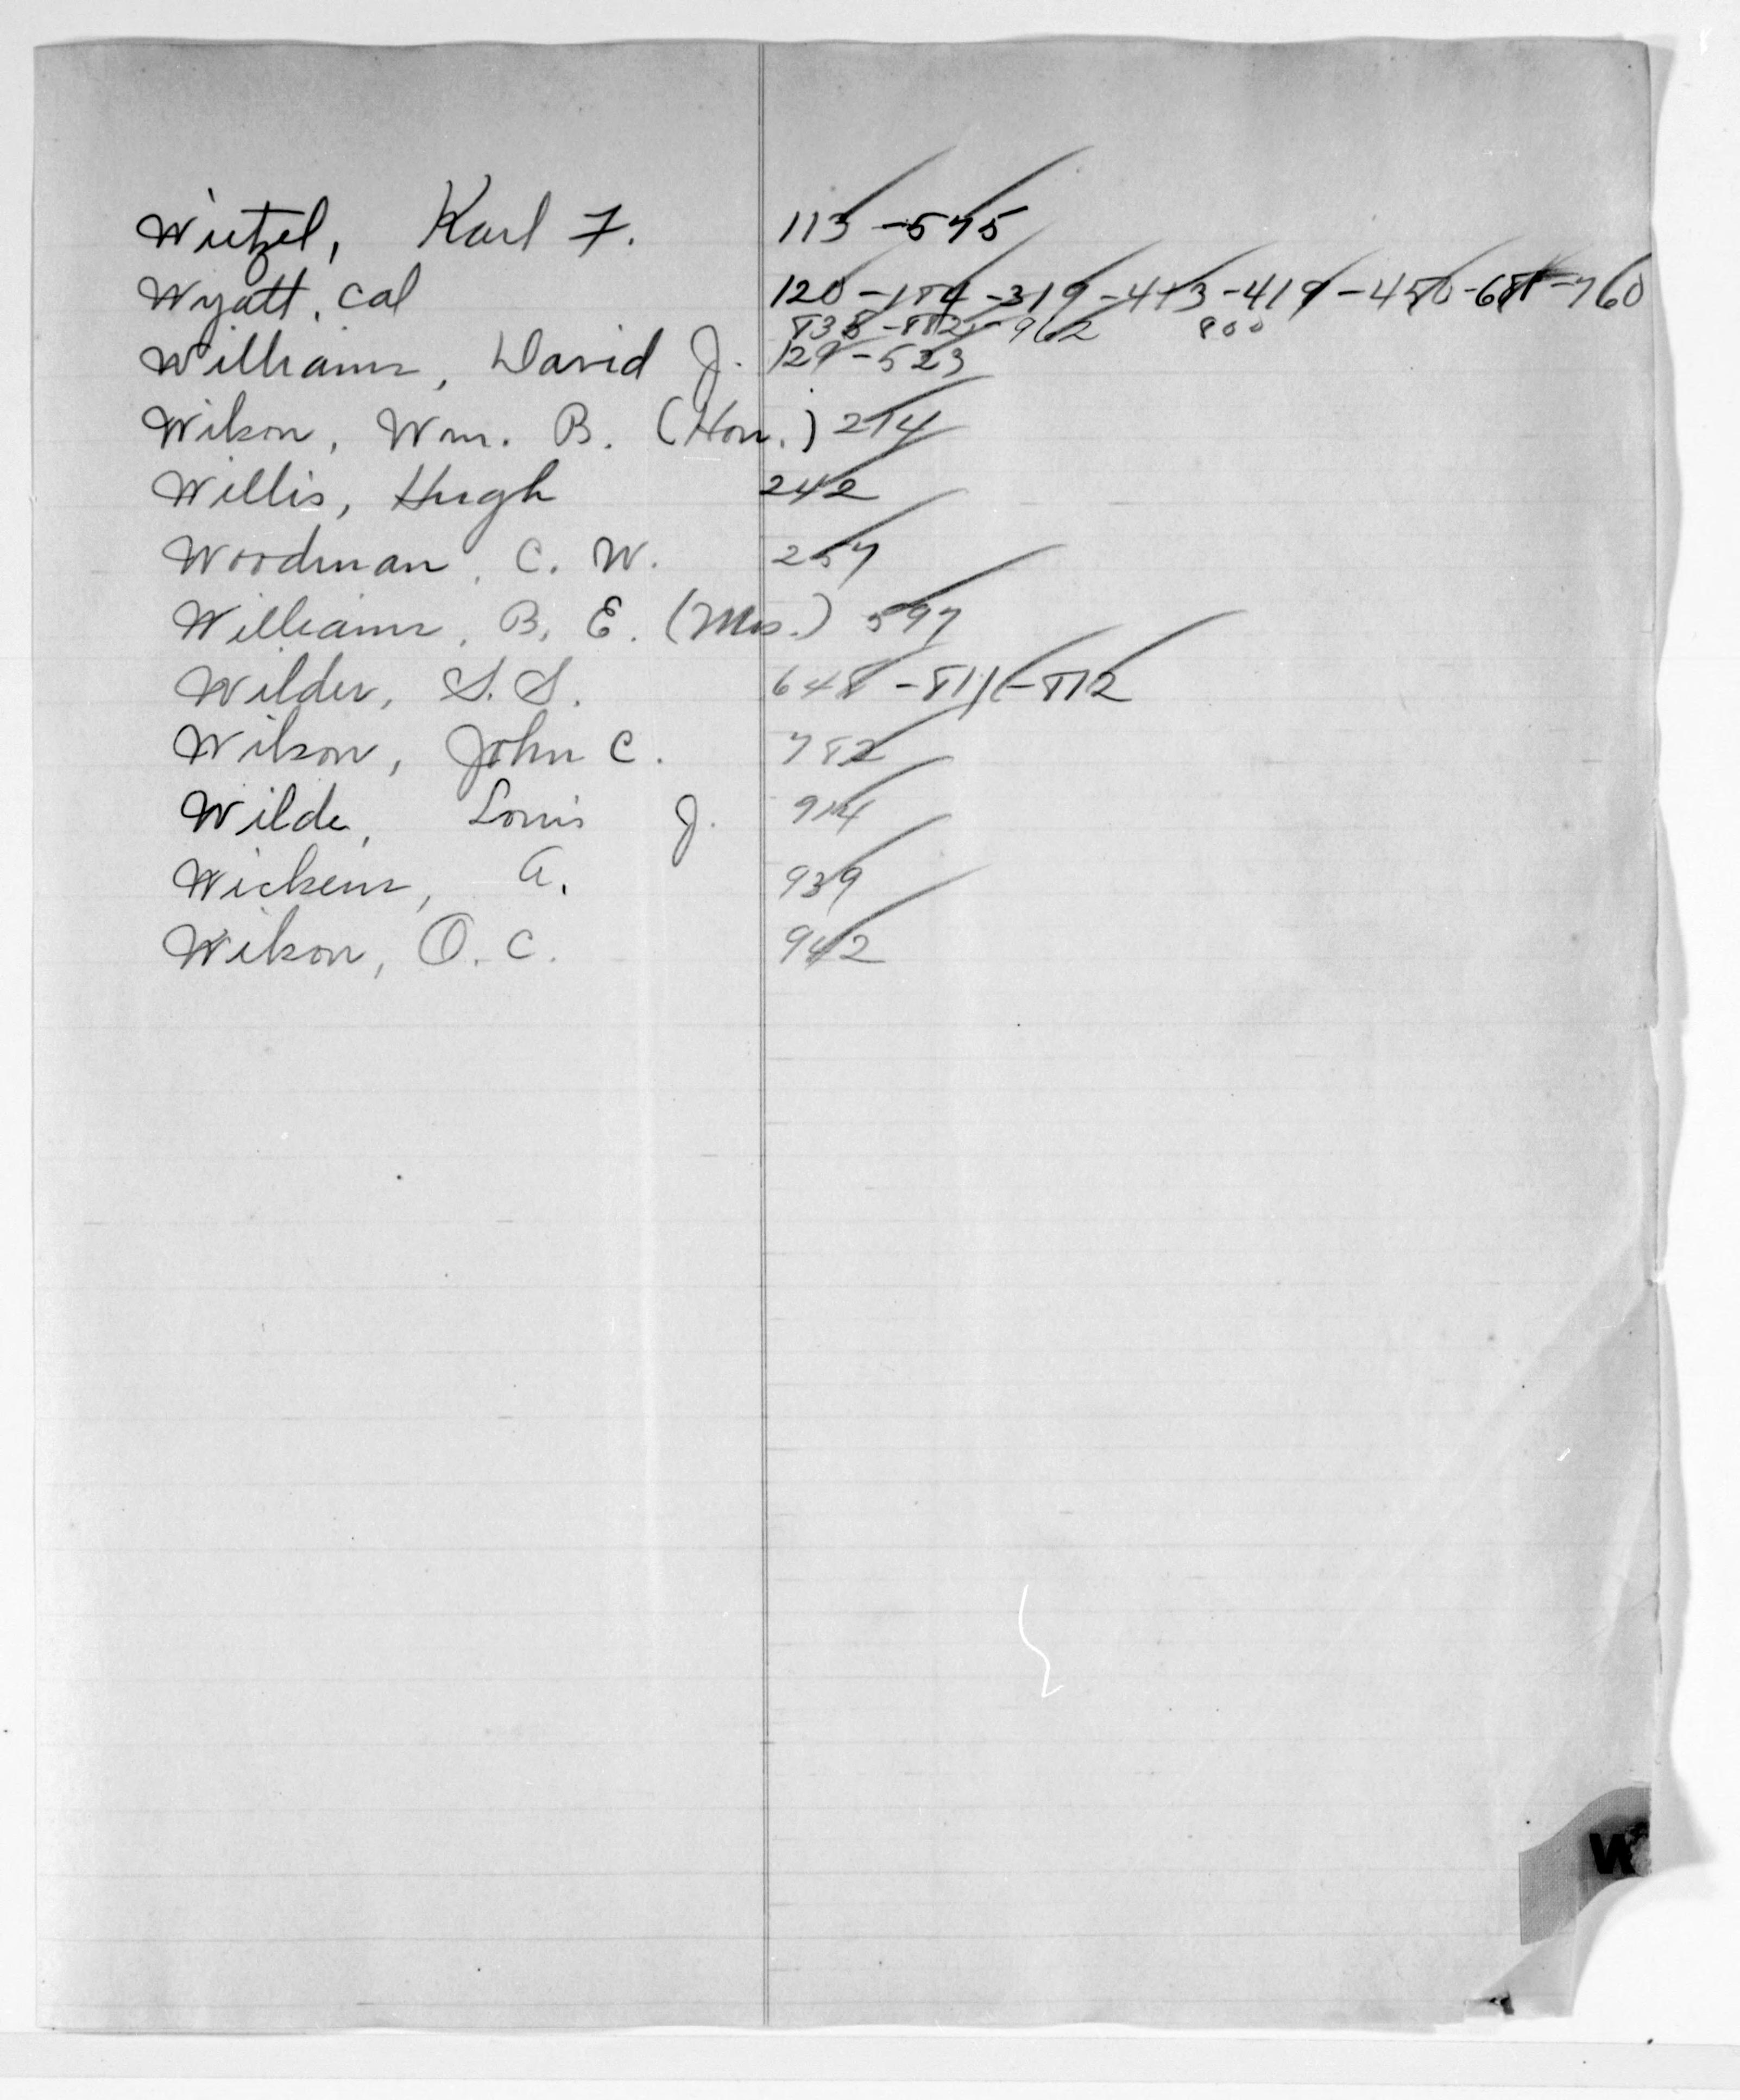 Wietzel, Karl F. 113 - 575
Wyatt, Cal 120 - 184 - 319 - 413 - 419 - 450 - 688 - 760
838 - 882 - 962 800
Williams, David J. 129 - 523
Wilson, Wm. B. (Hon.) 214
Willis, Hugh 242
Woodman, C. W. 257
Williams, B. E. (Mrs.) 597
Wilder, S. S. 648 - 811 - 812
Wilson, John C. 782
Wilde, Louis J. 914
Wickens, A. 939
Wilson, O. C. 942
W